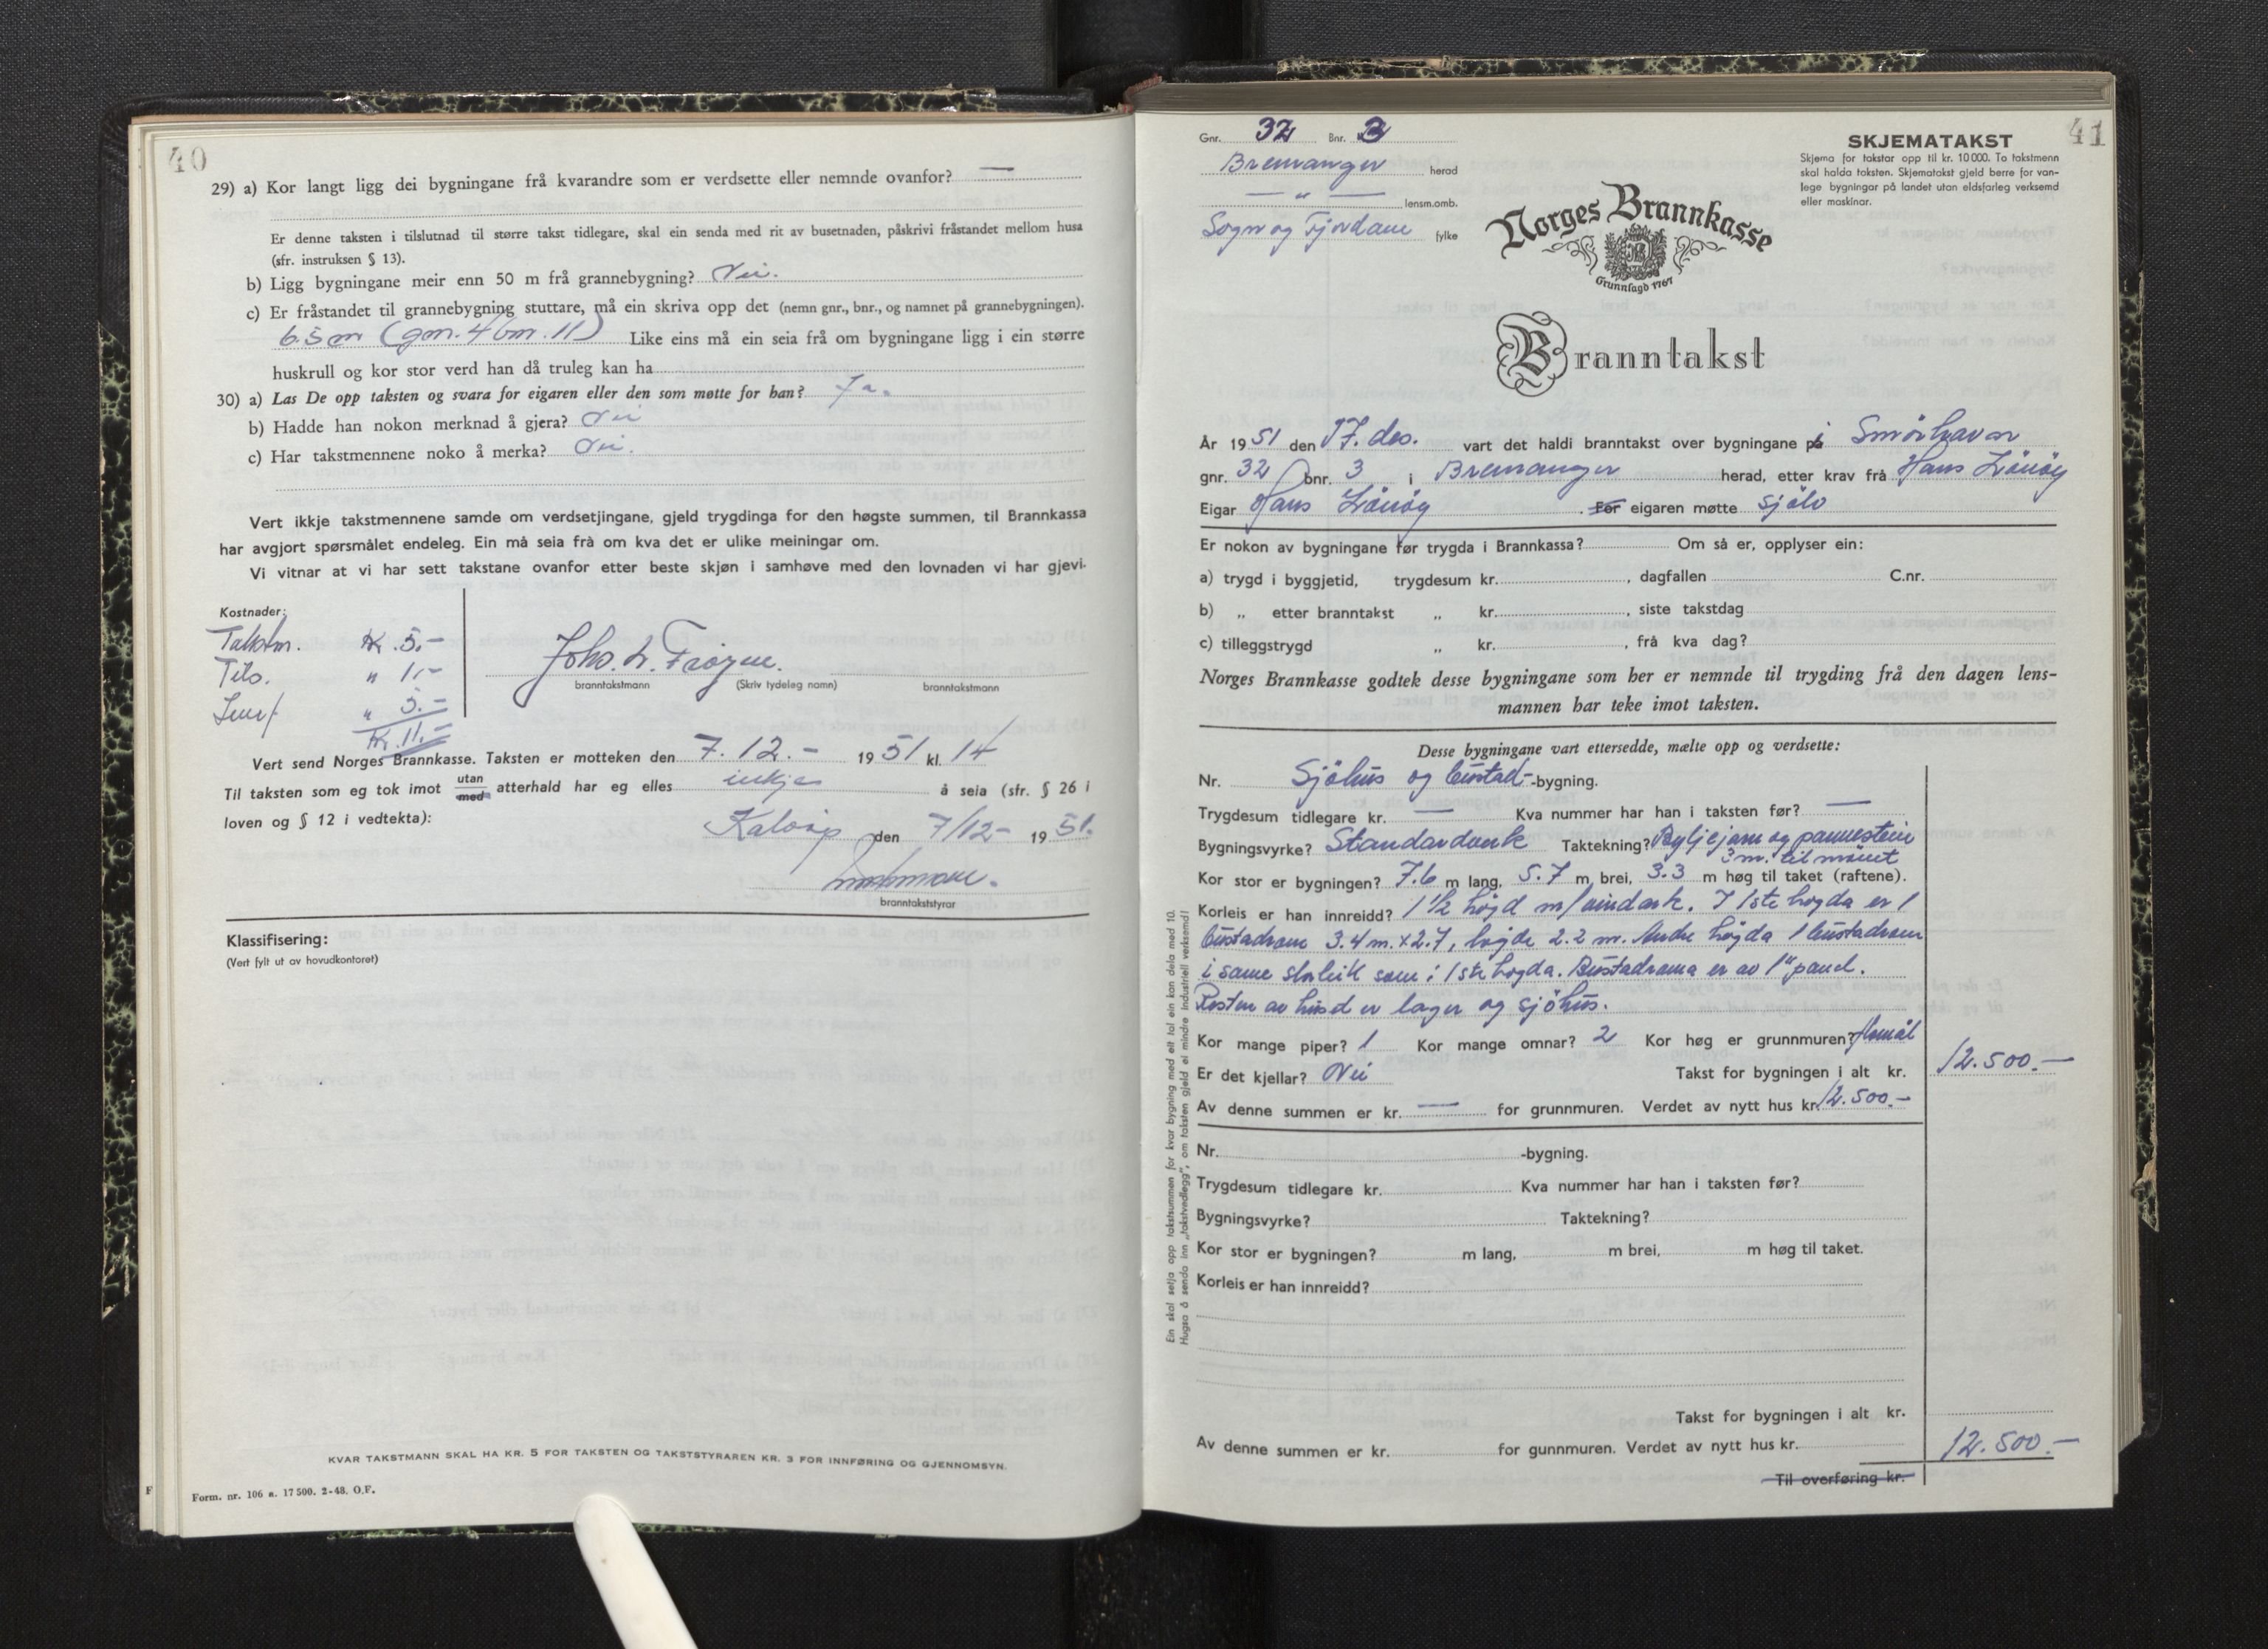 40
29) a) Kor langt ligg dei bygningane frå kvarandre som er verdsette eller nemnde ovanfor? —
Er denne taksten i tilslutnad til større takst tidlegare, skal ein senda med rit av busetnaden, påskrivi fråstandet mellom husa
(sfr. instruksen § 13).
b) Ligg bygningane meir enn 50 m frå grannebygning? Nei.
c) Er fråstandet til grannebygning stuttare, må ein skriva opp det (nemn gnr., bnr., og namnet på grannebygningen).
6.5 m (gnr. 4 bnr. 11) Like eins må ein seia frå om bygningane ligg i ein større
huskrull og kor stor verd han då truleg kan ha
30) a) Las De opp taksten og svara for eigaren eller den som møtte for han? Ja.
b) Hadde han nokon merknad å gjera? Nei
c) Har takstmennene noko å merka? Nei.
Vert ikkje takstmennene samde om verdsetjingane, gjeld trygdinga for den høgste summen, til Brannkassa
har avgjort spørsmålet endeleg. Ein må seia frå om kva det er ulike meiningar om.
Vi vitnar at vi har sett takstane ovanfor etter beste skjøn i samhøve med den lovnaden vi har gjevi.
Kostnader:
Takstm. Kr. 5.-
Tils. " 1.-
" 5.-
Kr. 11.-
Johs. L.
branntakstmann (Skriv tydeleg namn) branntakstmann
Vert send Norges Brannkasse. Taksten er motteken den 7. 12. - 1951 kl. 14
Til taksten som eg tok imot utan med atterhald har eg elles inkje å seia (sfr. § 26 i
loven og § 12 i vedtekta):
Kalvåg den 7/12- 1951.
branntakststyrar
Klassifisering:
(Vert fylt ut av hovudkontoret)
KVAR TAKSTMANN SKAL HA KR. 5 FOR TAKSTEN OG TAKSTSTYRAREN KR. 3 FOR INNFØRING OG GJENNOMSYN.
F
Form. nr. 106 n. 17 500. 2-48. O.F.
41
Gnr. 32 Bnr. 3
Bremanger herad
— " — lensm.omb.
Sogn og Fjordane fylke
SKJEMATAKST
Skjema for takstar opp til kr. 10 000. To takstmenn
skal halda taksten. Skjematakst gjeld berre for van-
lege bygningar på landet utan eldsfarleg verksemd
eller maskinar.
Norges Brannkasse
Grunnlagd 1767
Branntakst
År 1951 den 17. des. vart det haldi branntakst over bygningane på i Smörhavn
gnr. 32 bnr. 3 i Bremanger herad, etter krav frå Hans
Eigar Hans . For eigaren møtte sjölv
Er nokon av bygningane før trygda i Brannkassa? Om så er, opplyser ein:
a) trygd i byggjetid, trygdesum kr. , dagfallen C.nr.
b) „ etter branntakst „ kr. , siste takstdag
c) tilleggstrygd „ kr. , frå kva dag?
Norges Brannkasse godtek desse bygningane som her er nemnde til trygding frå den dagen lens-
mannen har teke imot taksten.
Desse bygningane vart ettersedde, mælte opp og verdsette:
Nr. Sjöhus og bustad-bygning.
Trygdesum tidlegare kr. — Kva nummer har han i taksten før? —
Bygningsvyrke? Standardverk Taktekning? og pannestein
3 m. til mönet
Kor stor er bygningen? 7.6 m lang, 5.7 m brei, 3.3 m høg til taket (raftene).
Korleis er han innreidd? 1 1/2 högd m/ . I 1ste högda er 1
bustadrom 3.4 m. x 2.7, högde 2.2 m. Andre högda 1 bustadrom
i same storleik som i 1ste högda. Bustadroma er av 1" panel.
Resten av huset er lager og sjöhus.
Kor mange piper? 1 Kor mange omnar? 2 Kor høg er grunnmuren?
Er det kjellar? Nei Takst for bygningen i alt kr. 12.500.—
Av denne summen er kr. — for grunnmuren. Verdet av nytt hus kr. 12.500.-
Nr. -bygning.
Trygdesum tidlegare kr. Kva nummer har han i taksten før?
Bygningsvyrke? Taktekning?
Kor stor er bygningen? m lang, m brei, m høg til taket.
Korleis er han innreidd?
Takst for bygningen i alt kr.
Av denne summen er kr. for gunnmuren. Verdet av nytt hus kr.
12.500.—
Til overføring kr.
Ein skal setja opp takstsummen for kvar bygning med eit tal ein kan dela med 10.
Hugsa å senda inn „takstvedlegg", om taksten gjeld ei mindre industriell verksemd!